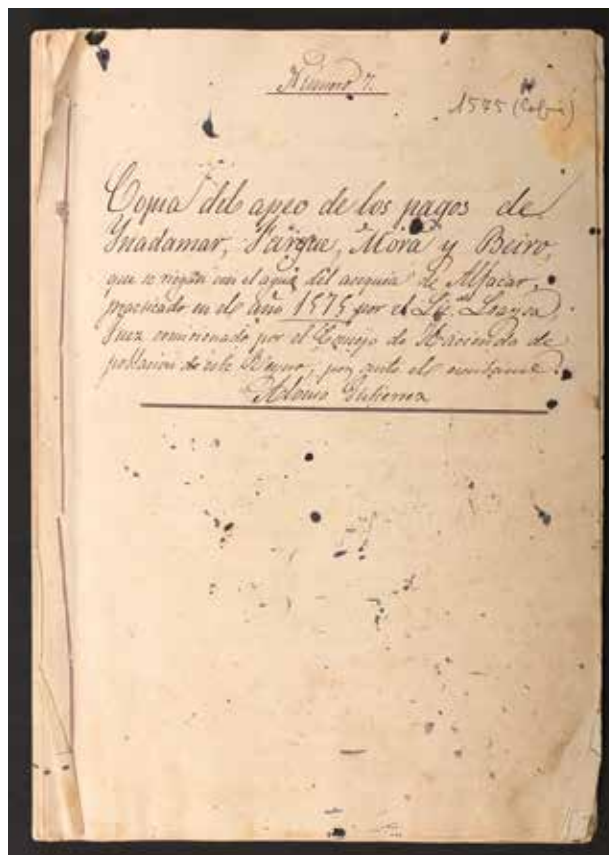 Numero 7.
1575 (Copia)
Copia del apeo de los pagos de
Inadamar, Fargue, Mora y Beiro,
que se riegan con el agua del acequia de Alfacar,
practicado en el año 1575 por el Lic.do Loaysa
Juez comisionado por el Consejo de Hacienda de
poblacion de este Reyno, por ante el escribano
Alonso Gutierrez